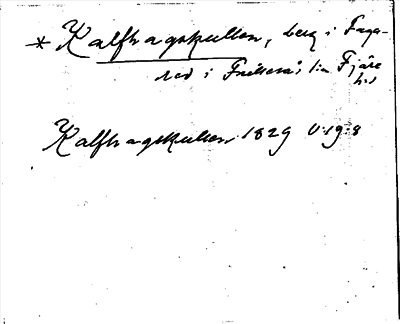 * Kalfhagskullen, berg i Faga-
red i Frillesås sn Fjäre
hd
Kalfhagskullen 1829 V:19:8